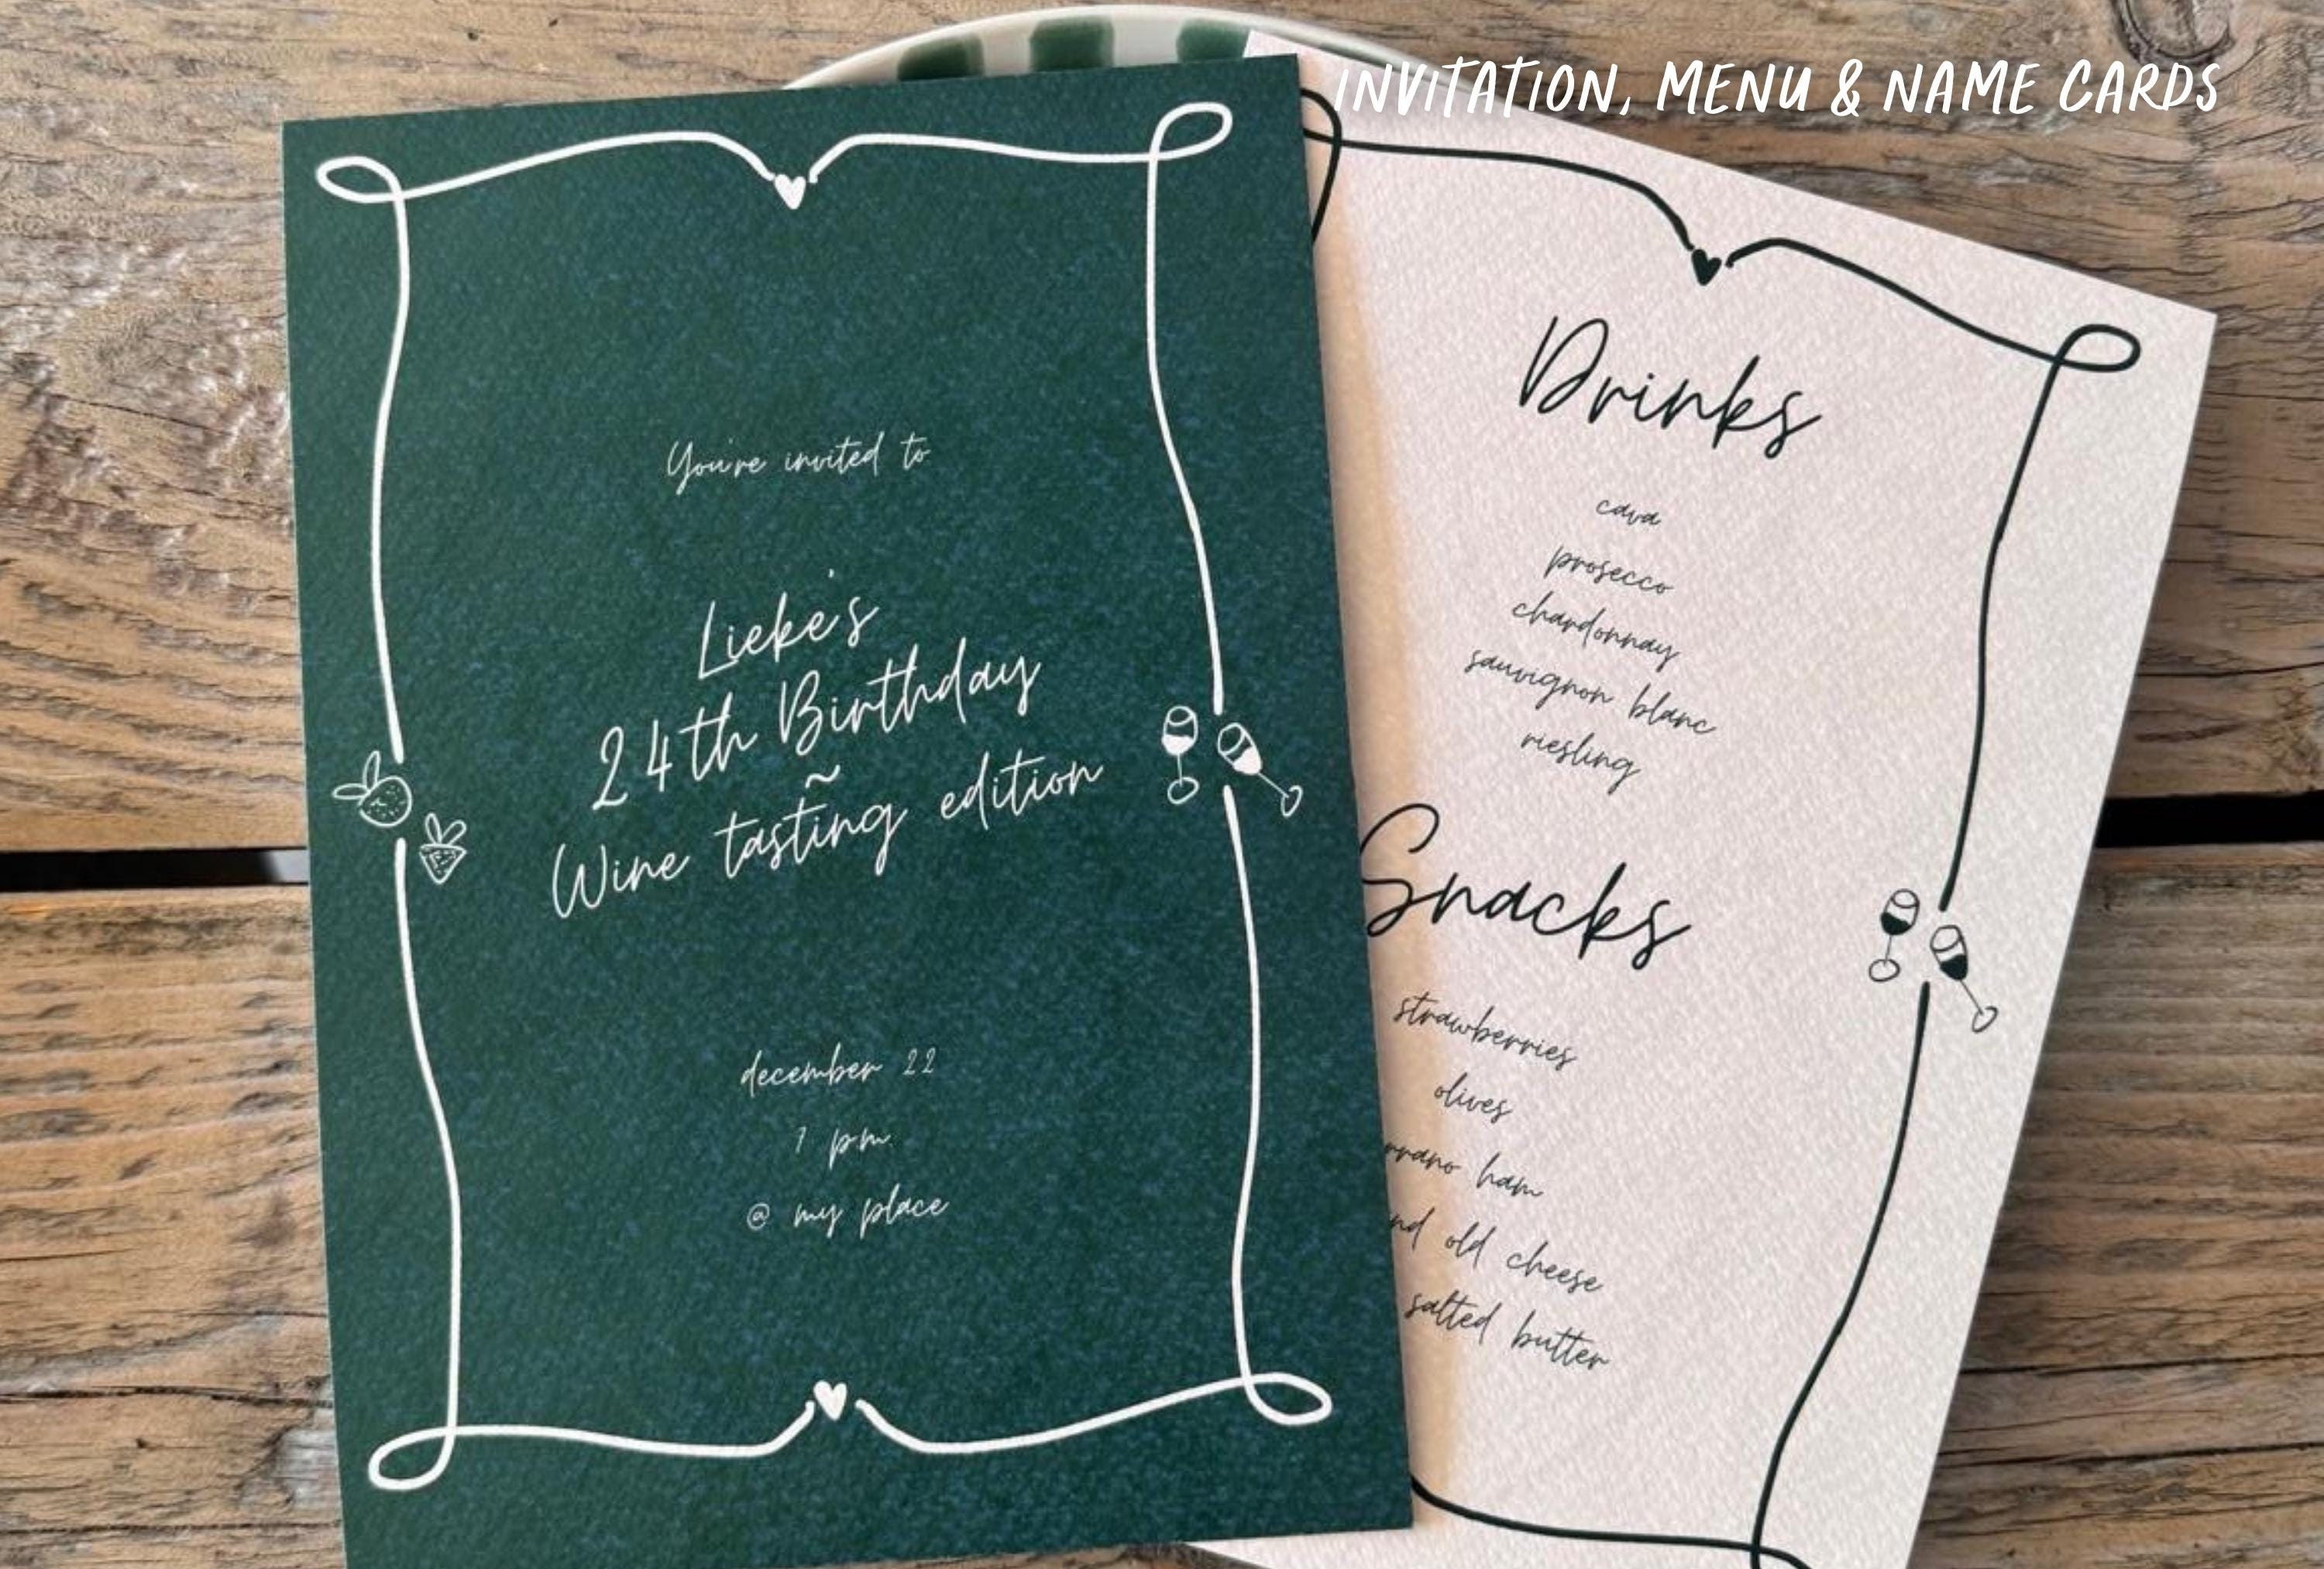 INVITATION, MENU & NAME CARDS
You're invited to
Lieke's
24th Birthday
~
Wine tasting edition
december 22
7 p.m.
@ my place
Drinks
cava
prosecco
chardonnay
sauvignon blanc
riesling
Snacks
strawberries
olives
ham
old cheese
salted butter